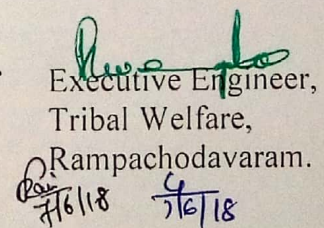 Executive Engineer,
Tribal Welfare,
Rampachodavaram.
7/6/18 7/6/18